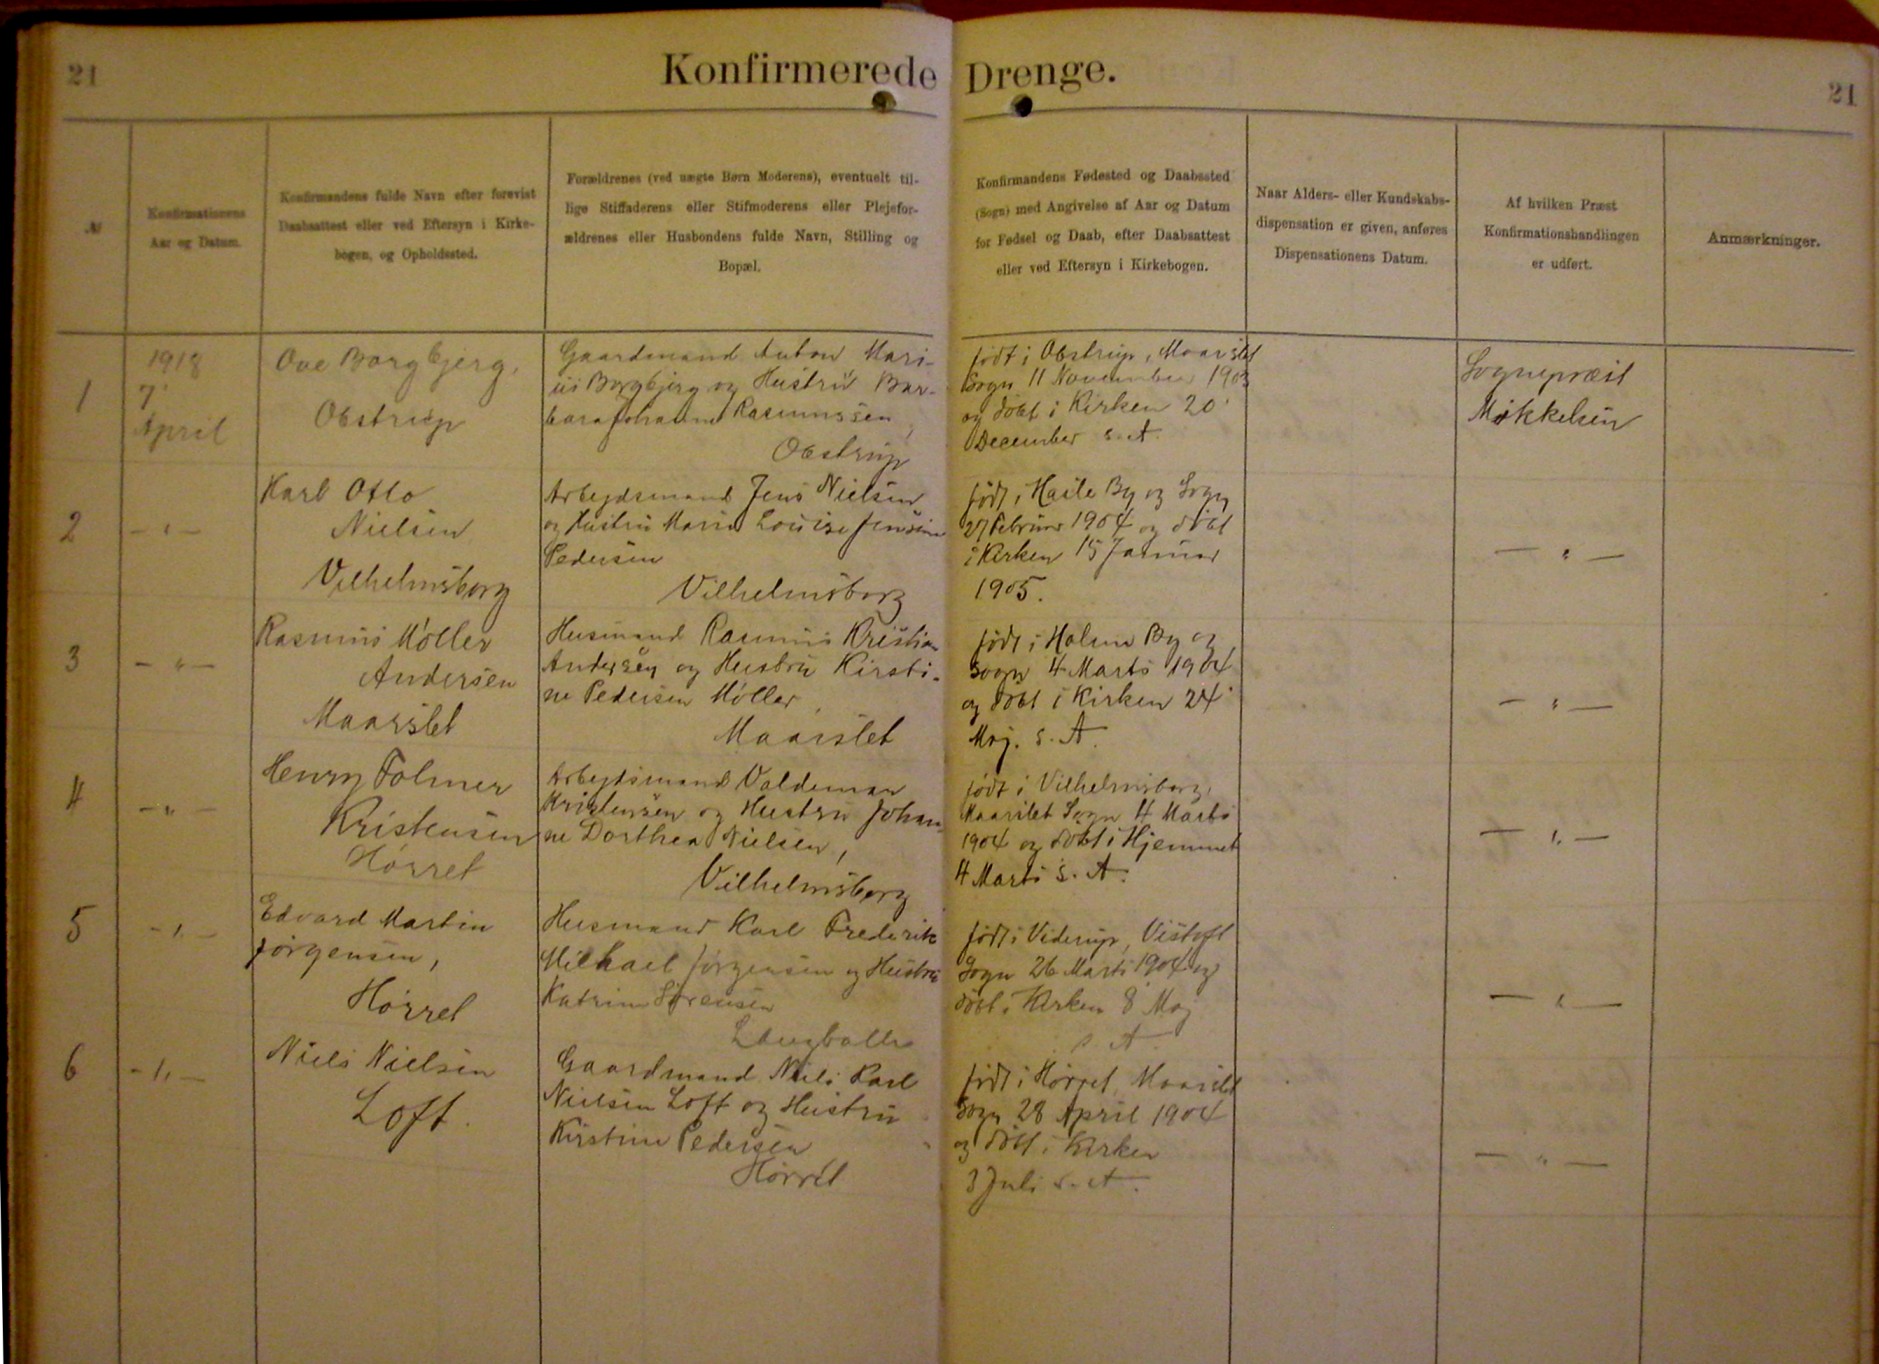 21
Konfirmerede Drenge.
21
№
Konfirmationens
Aar og Datum.
Konfirmandens fulde Navn efter forevist
Daabsattest eller ved Eftersyn i Kirke-
bogen, og Opholdssted.
Forældrenes (ved uægte Børn Moderens), eventuelt til-
lige Stiffaderens eller Stifmoderens eller Plejefor-
ældrenes eller Husbondens fulde Navn, Stilling og
Bopæl.
Konfirmandens Fødested og Daabssted
(Sogn) med Angivelse af Aar og Datum
for Fødsel og Daab, efter Daabsattest
eller ved Eftersyn i Kirkebogen.
Naar Alders- eller Kundskabs-
dispensation er given, anføres
Dispensationens Datum.
Af hvilken Præst
Konfirmationshandlingen
er udført.
Anmærkninger.
1
1918
7'
April
Ove Borgbjerg,
Obstrup
Gaardmand Anton Mari-
us Borgbjerg og Hustru Bar-
bara Johanne Rasmussen,
Obstrup
født i Obstrup, Maarslet
Sogn 11 November 1903
og døbt i Kirken 20'
December s. A.
Sognepræst
Mikkelsen
2
- " -
Karl Otto
Nielsen
Vilhelmsborg
Arbejdsmand Jens Nielsen
og Hustru Marie Louise Jensine
Pedersen
Vilhelmsborg
født i Hasle By og Sogn
27 Februar 1904 og døbt
i Kirken 15 Januar
1905.
- " -
3
- " -
Rasmus Møller
Andersen
Maarslet
Husmand Rasmus Kristian
Andersen og Hustru Kirsti-
ne Pedersen Møller,
Maarslet
født i Holme By og
Sogn 4 Marts 1904
og døbt i Kirken 24'
Maj. s. A.
- " -
4
- " -
Henry Folmer
Kristensen
Hørret
Arbejdsmand Valdemar
Kristensen og Hustru Johan-
ne Dorthea Nielsen,
Vilhelmsborg
født i Vilhelmsborg,
Maarslet Sogn 4 Marts
1904 og døbt i Hjemmet
4 Marts s. A.
- " -
5
- " -
Edvard Martin
Jørgensen,
Hørret
Husmand Karl Frederik
Michael Jørgensen og Hustru
Katrine Sørensen
Langballe
født i Viderup, Vistoft
Sogn 26 Marts 1904 og
døbt i Kirken 8' Maj
s. A.
- " -
6
- " -
Niels Nielsen
Loft.
Gaardmand Niels Karl
Nielsen Loft og Hustru
Kirstine Pedersen
Hørret
født i Hørret, Maarslet
Sogn 28 April 1904
og døbt i Kirken
3 Juli s. A.
- " -